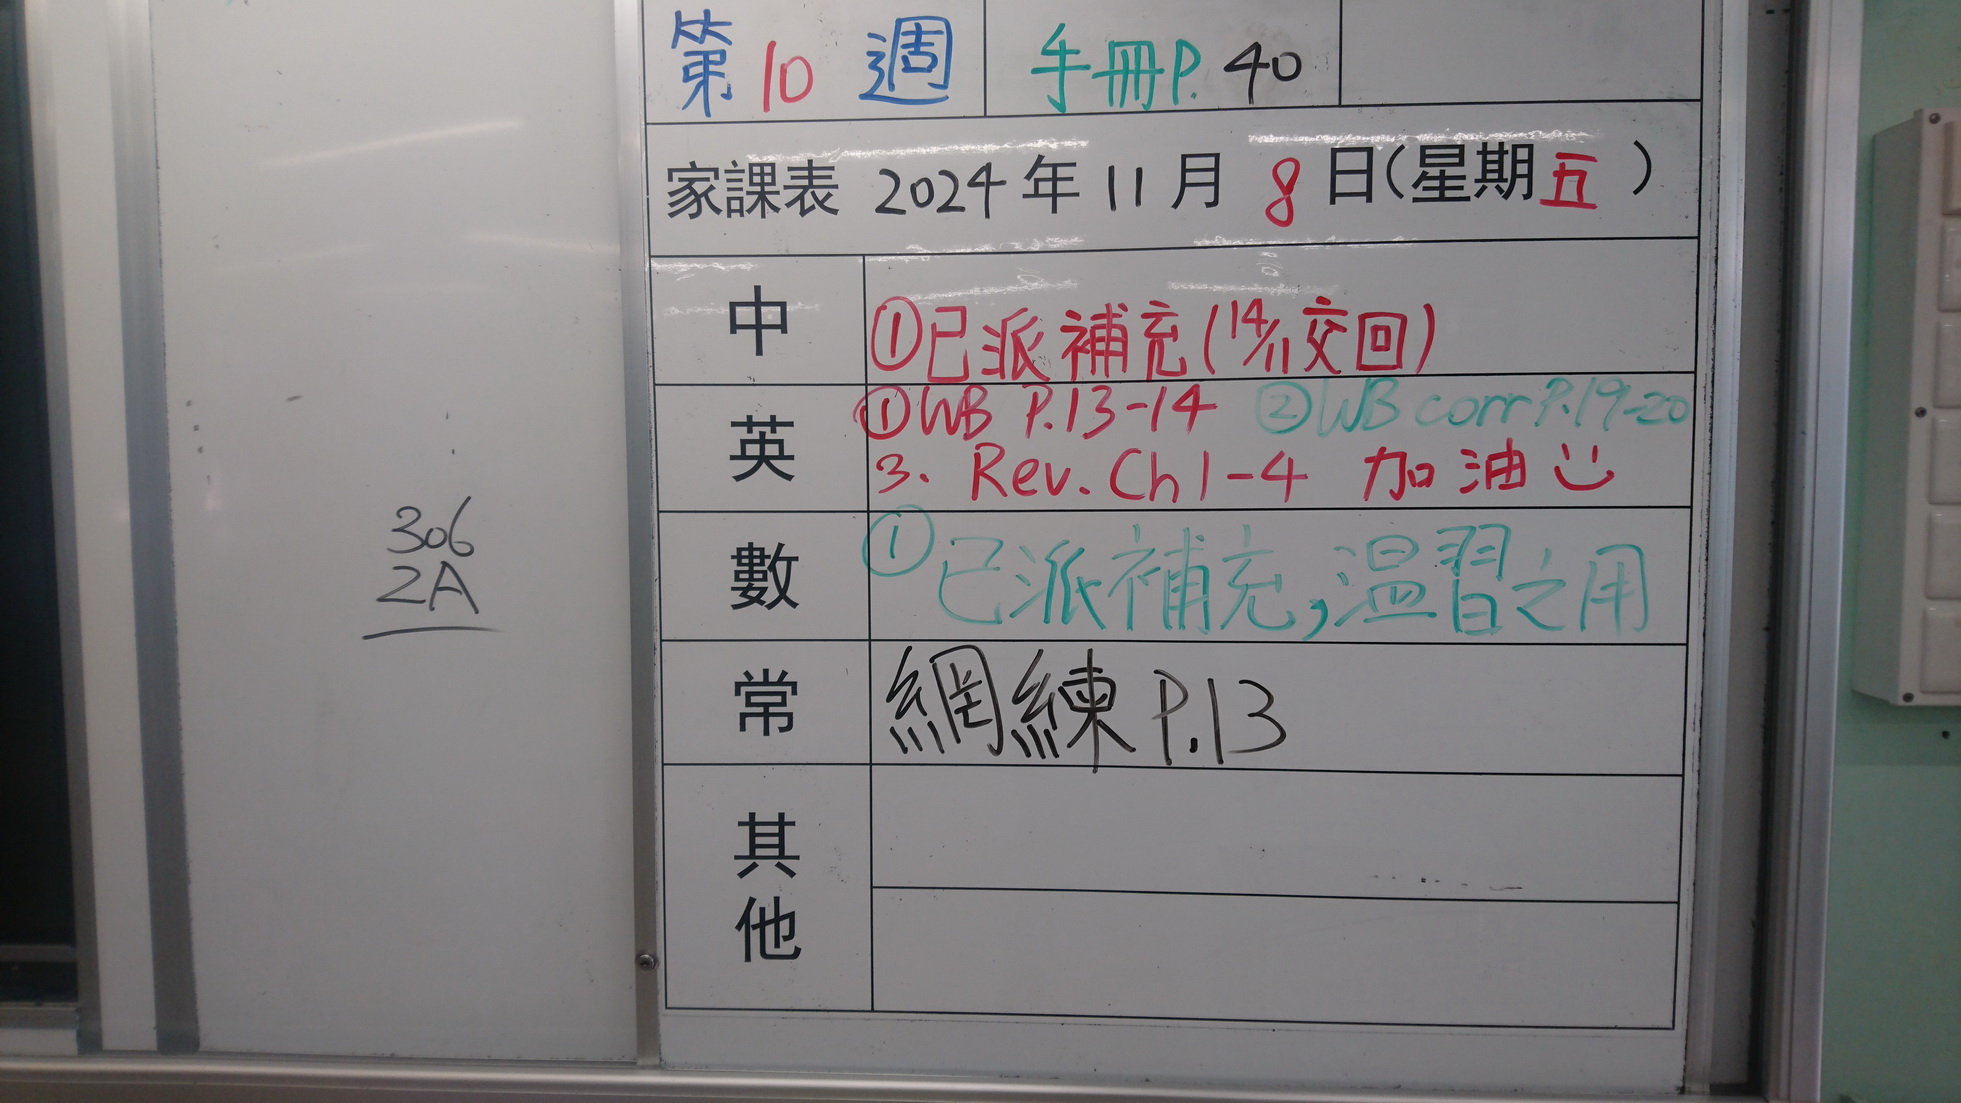 第10週 手冊P.40
家課表 2024年11月8日(星期五)
中 ①已派補充(14/11交回)
英 ①WB P.13-14 ②WB corr P.19-20
3. Rev. Ch 1-4 加油
數 ①已派補充,温習之用
常 網練 P.13
其他
306
2A